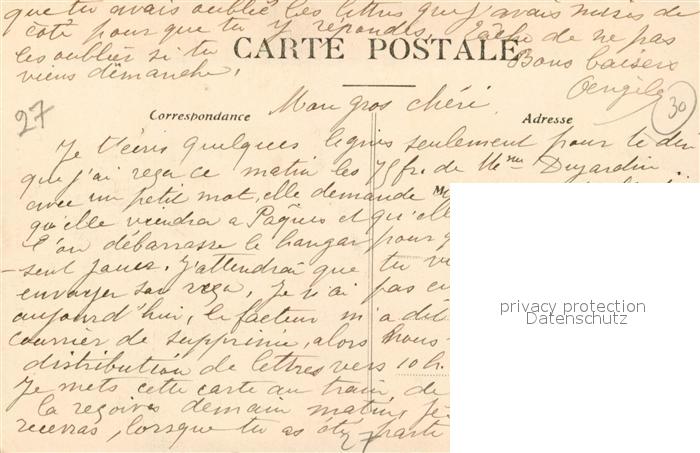 que tu avais oublié les lettres que j'avais mises de
côté pour que tu y répondes. Tâche de ne pas
les oublier si tu
viens dimanche.
Bons baisers
CARTE POSTALE
27
30
Correspondance
Adresse
Mon gros chéri
Je t'écris quelques lignes seulement pour te dire
que j'ai reçu ce matin les 75 fr. de Mme Dujardin
avec un petit mot, elle demande
qu'elle viendra à Pâques et qu'elle
l'on débarrasse le hangar pour
sent jouer. J'attendrai que tu
envoyer son reçu. Je n'ai pas
aujourd'hui, le facteur m'a dit
courrier de supprimé, alors nous
distribution de lettres vers 10 h.
Je mets cette carte au train, de
la reçoives demain matin, je
recevras, lorsque tu as été parti
privacy protection
Datenschutz